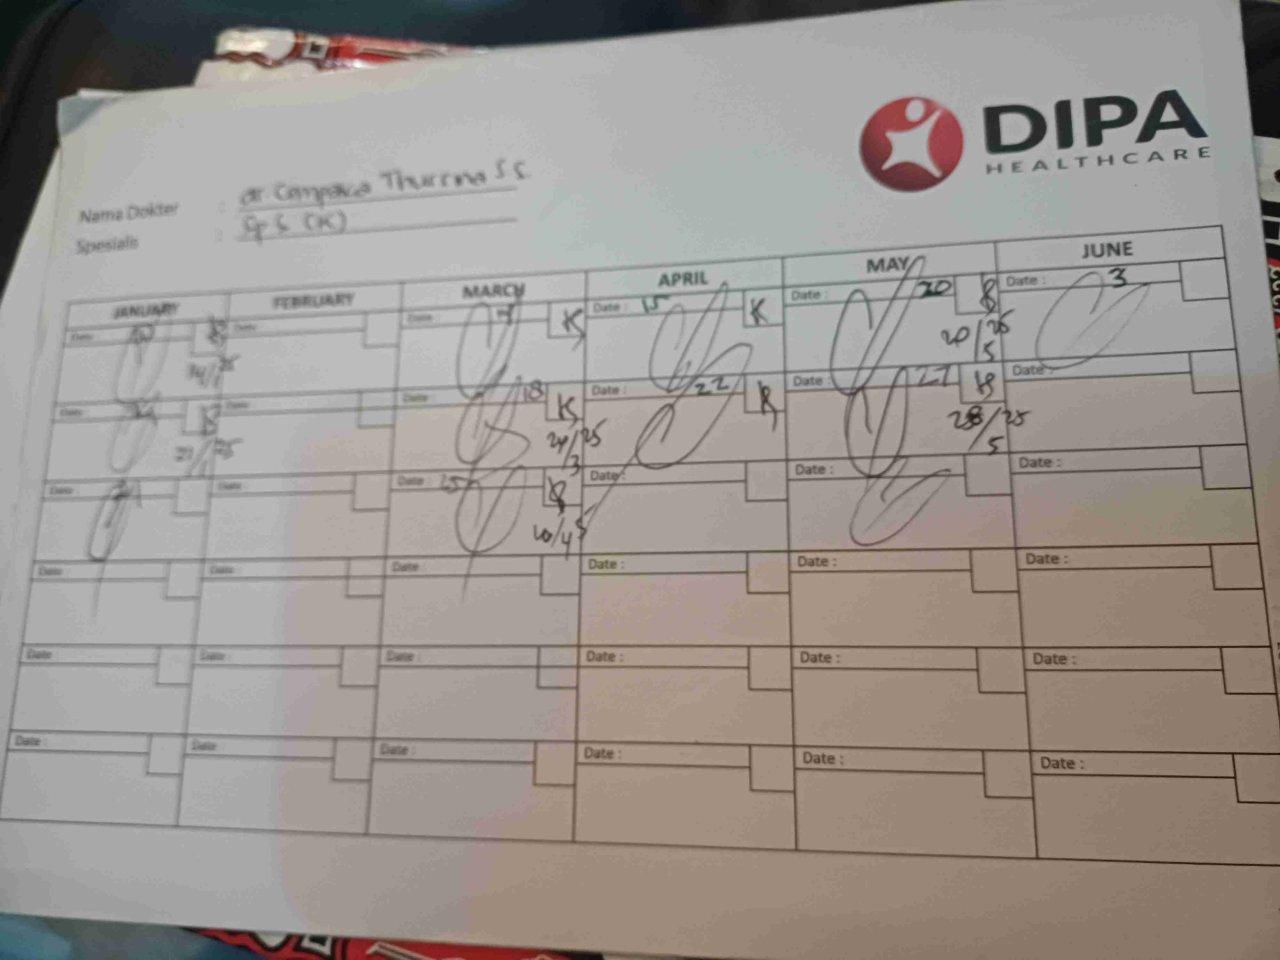 DIPA
HEALTHCARE
Nama Dokter : dr. Cempaka Thursina S.S.
Spesialis : Sp S (K)
JANUARY FEBRUARY MARCH APRIL MAY JUNE
Date : Date : Date : 7 K Date : 15 K Date : 20 Date : 3
14/1 25 20/5 25
Date : 14 Date : Date : 18 K Date : 22 K Date : 27 Date :
21/1 25 24/3 25 28/5 25
Date : 21 Date : Date : Date : Date : Date :
10/4
Date : Date : Date : Date : Date : Date :
Date : Date : Date : Date : Date : Date :
Date : Date : Date : Date : Date : Date :